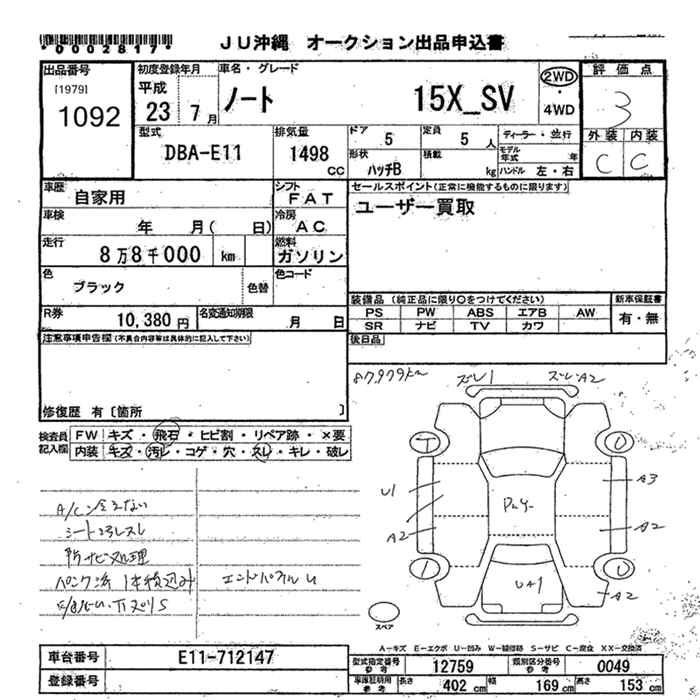 *0002817*
JU沖縄 オークション出品申込書
出品番号 初度登録年月 車名・グレード 2WD・4WD 評価点
[1979] 1092 平成 23 7月 ノート 15X_SV 3
型式 DBA-E11 排気量 1498 CC
ドア 5 定員 5 人 ディーラー・並行 外装 内装
形状 ハッチB 積載 kg モデル年式 年 ハンドル 左・右 C C
車歴 自家用 シフト FAT セールスポイント(正常に機能するものに限ります)
車検 年 月( 日) 冷房 AC ユーザー買取
走行 8万8千000 km 燃料 ガソリン
色 ブラック 色替 色コード
装備品(純正品に限り○をつけてください) 新車保証書
R券 10,380円 名変通知期限 月 日
PS PW ABS エアB AW 有・無
SR ナビ TV カワ
注意事項申告欄(不具合内容等は具体的に記入して下さい) 後日品
修復歴 有〔箇所 〕
87979km ズレ1 ズレA2
検査員記入欄 FW キズ・飛石・ヒビ割・リペア跡・×要
内装 キズ・汚レ・コゲ・穴・スレ・キレ・破レ
T
U1 A3
A2 A2
U41
A2
シートコゲレスレ
防サビ処理
スペア
A-キズ E-エクボ U-凹み W-補修跡 S-サビ C-腐食 XX-交換済
車台番号 E11-712147
登録番号
型式指定番号参考 12759 類別区分番号参考 0049
車庫証明用参考 長さ 402 cm 幅 169 cm 高さ 153 cm